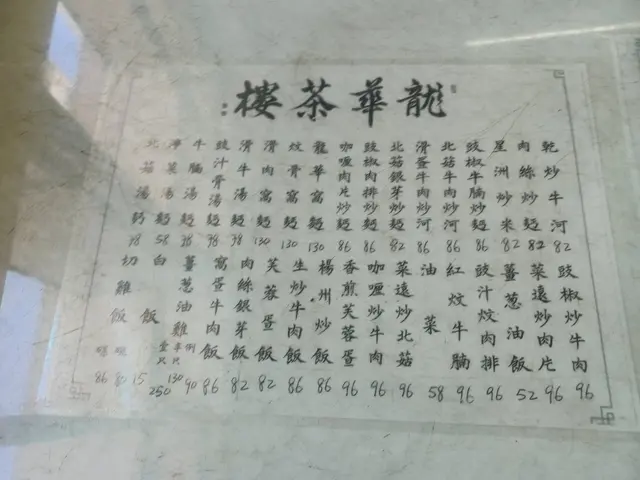 龍華茶樓
乾炒牛河 82
肉絲炒麵 82
星洲炒米 82
豉椒牛腩炒麵 86
北菇牛肉炒河 86
滑蛋牛肉炒河 86
北菇銀芽炒麵 82
豉椒肉排炒麵 86
咖喱肉片炒麵 86
龍華窩麵 130
炆骨窩麵 130
滑肉窩麵 130
滑牛湯麵 98
豉汁骨湯麵 98
牛腩湯麵 98
淨菜湯麵 58
北菇湯麵 98
豉椒炒牛肉 96
菜遠炒肉片 96
薑葱油飯 52
豉汁炆肉排 96
紅炆牛腩 96
油菜 58
菜遠炒北菇 96
咖喱牛肉 96
香煎芙蓉蛋 96
楊州炒飯 86
生炒牛肉飯 86
芙蓉蛋飯 82
肉絲銀芽飯 82
窩蛋牛肉飯 86
薑葱油雞 例 90 半只 130 壹只 250
白飯 15
切雞飯 86